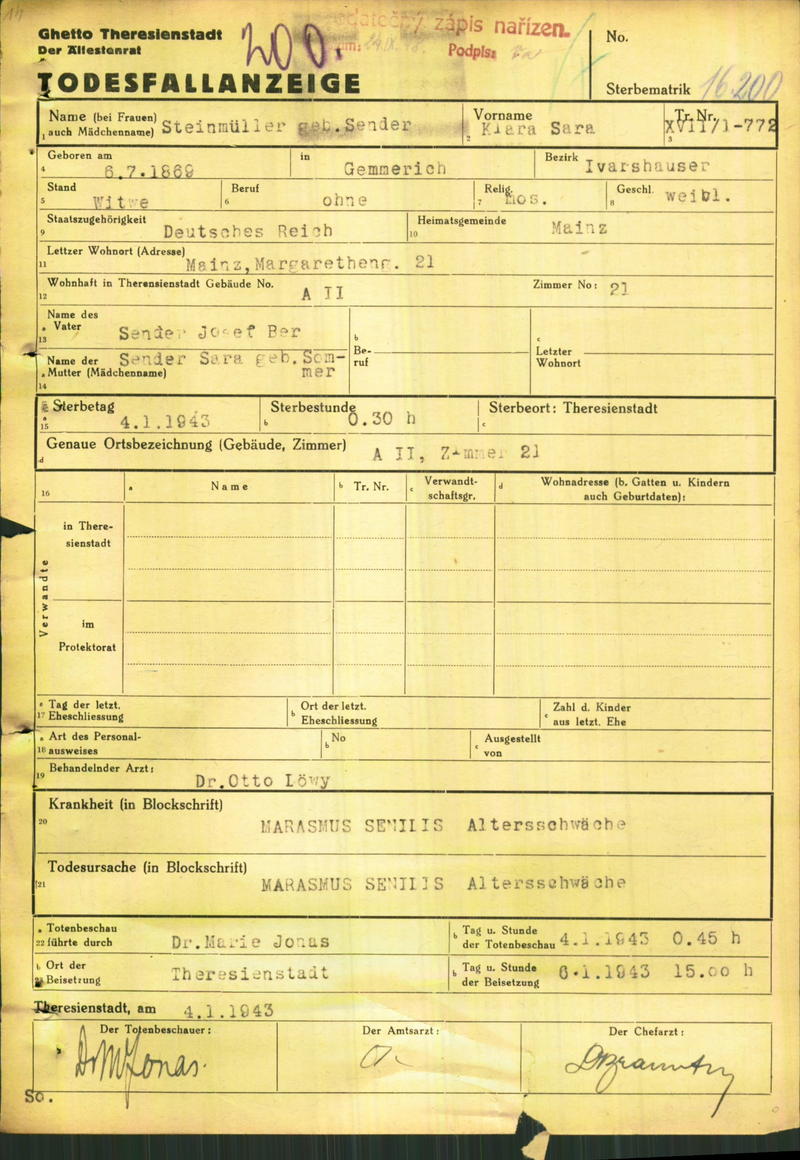 Ghetto Theresienstadt
Der Ältestenrat
TODESFALLANZEIGE
zápis nařízen.
Podpis:
No.
Sterbematrik 16.200
Name (bei Frauen) auch Mädchenname) Steinmüller geb.Sender
Vorname Klara Sara
Tr. Nr. XVII/1-772
Geboren am 6.7.1869 in Gemmerich Bezirk Ivarshauser
Stand Witwe Beruf ohne Relig. mos. Geschl. weibl.
Staatszugehörigkeit Deutsches Reich Heimatsgemeinde Mainz
Lettzer Wohnort (Adresse) Mainz,Margaretheng. 21
Wohnhaft in Theresienstadt Gebäude No. A II Zimmer No: 21
Name des Vater Sender Josef Ber
Name der Mutter (Mädchenname) Sender Sara geb.Sommer
Beruf
Letzter Wohnort
Sterbetag 4.1.1943 Sterbestunde 0.30 h Sterbeort: Theresienstadt
Genaue Ortsbezeichnung (Gebäude, Zimmer) A II, Zimmer 21
16 a Name b Tr. Nr. c Verwandtschaftsgr. d Wohnadresse (b. Gatten u. Kindern auch Geburtdaten):
Verwandte
in Theresienstadt
im Protektorat
17 a Tag der letzt. Eheschliessung b Ort der letzt. Eheschliessung c Zahl d. Kinder aus letzt. Ehe
18 a Art des Personalausweises b No c Ausgestellt von
19 Behandelnder Arzt: Dr.Otto Löwy
Krankheit (in Blockschrift)
20 MARASMUS SENILIS Altersschwäche
Todesursache (in Blockschrift)
21 MARASMUS SENILIS Altersschwäche
22 a Totenbeschau führte durch Dr.Marie Jonas b Tag u. Stunde der Totenbeschau 4.1.1943 0.45 h
Ort der Beisetzung Theresienstadt b Tag u. Stunde der Beisetzung 6.1.1943 15.00 h
Theresienstadt, am 4.1.1943
Der Totenbeschauer: Der Amtsarzt: Der Chefarzt:
Dr M Jonas
So.